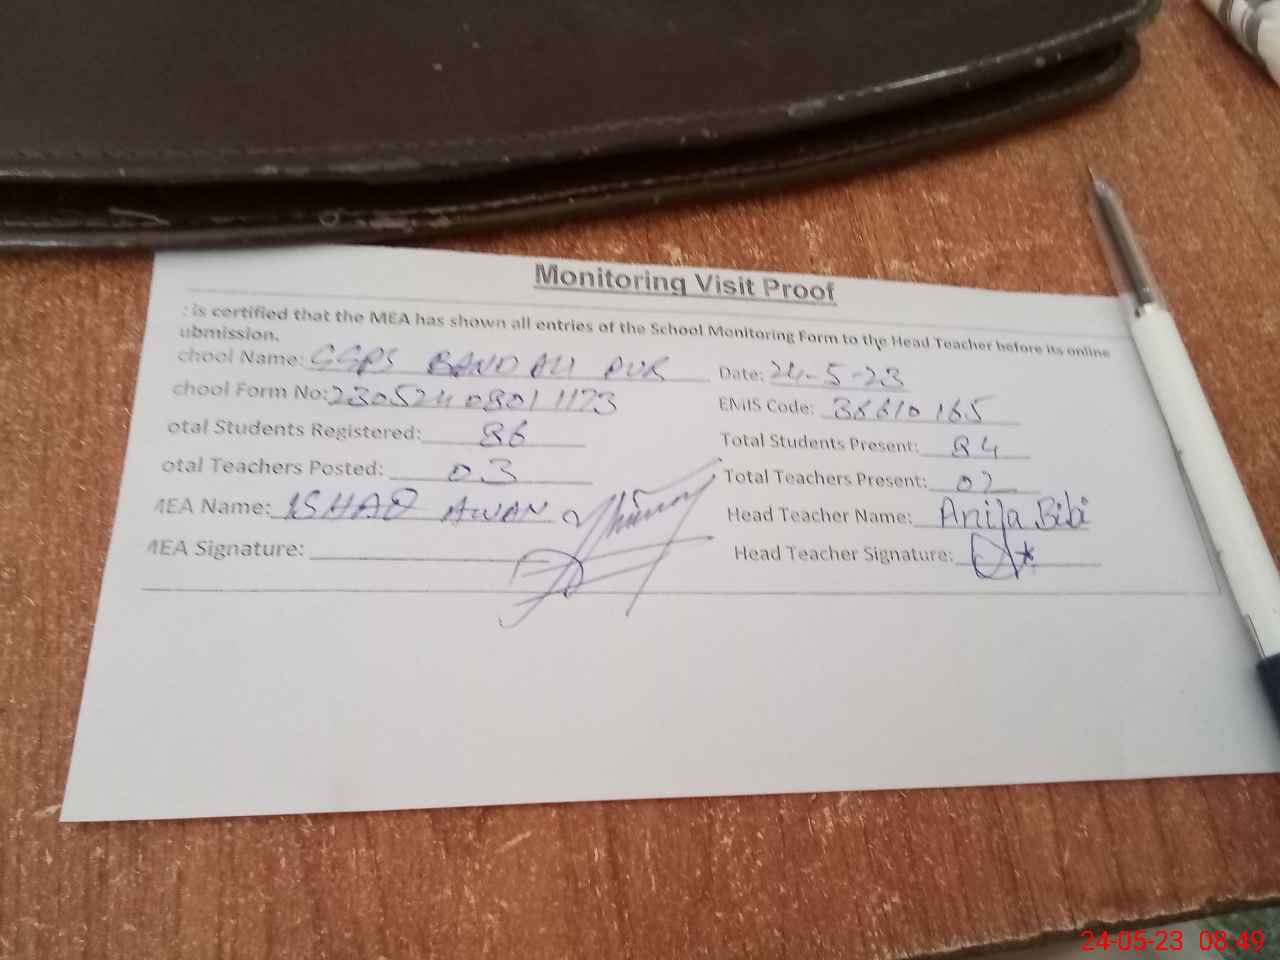 Monitoring Visit Proof
: is certified that the MEA has shown all entries of the School Monitoring Form to the Head Teacher before its online
ubmission.
chool Name: GGPS BAND ALI PUR Date: 24-5-23
chool Form No: 23052408011123 EMIS Code: 38610165
otal Students Registered: 86 Total Students Present: 84
otal Teachers Posted: 03 Total Teachers Present: 02
MEA Name: ISHAQ AWAN Head Teacher Name: Anila Bibi
MEA Signature: Head Teacher Signature:
24-05-23 08:49